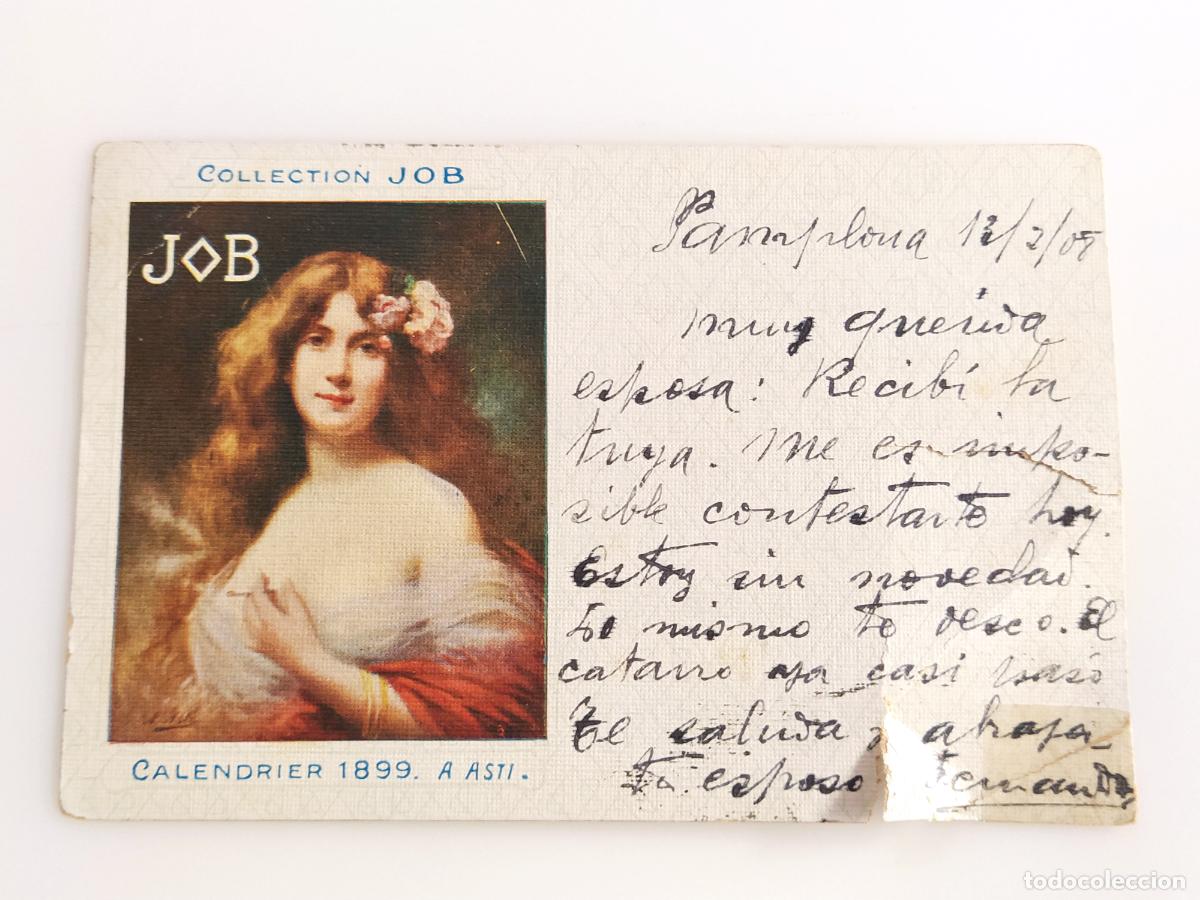 COLLECTION JOB
JOB
CALENDRIER 1899. A ASTI.
Pamplona 12/2/08
Muy querida
esposa: Recibí la
tuya. Me es impo-
sible contestarte hoy.
Estoy sin novedad.
Lo mismo te deseo. El
catarro ya casi pasó
Te saluda y abraza
tu esposo Fernando
todocoleccion